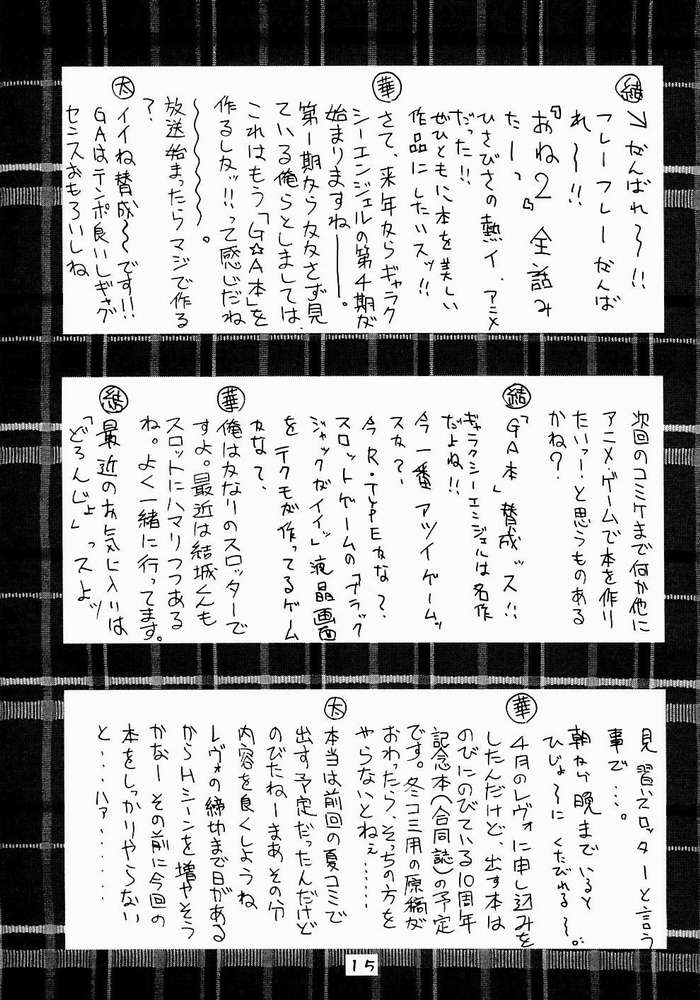 結→がんばれ〜!!
フレーフレーがんば
れ〜!!
『おね2』全話み
たーっ
ひさびさの熱イ、アニメ
だった!!
ぜひともに本を美しい
作品にしたいスッ!!
華
さて、来年からギャラク
シーエンジェルの第4期が
始まりますねー。
第1期からかかさず見
ている俺らとしましては、
これはもう「G☆A本」を
作るしカッ!!って感じだね
〜〜〜〜。
放送始まったらマジで作る
?
太
イイね賛成〜です!!
GAはテンポ良いしギャグ
センスおもろいしね
次回のコミケまで何か他に
アニメ・ゲームで本を作り
たいっー!と思うものある
かね?
結
「GA本」賛成ッス!!
ギャラクシーエンジェルは名作
だよね!!
今一番アツイゲームッ
スか?、
今R・TYPEかな?、
スロットゲームの「ブラック
ジャックがイイッ」液晶画面
をテクモが作ってるゲーム
かな?、
華
俺はかなりのスロッターで
すよ。最近は結城くんも
スロットにハマりつつある
ね。よく一緒に行ってます。
結
最近のお気に入りは
「どろんじょ」っスよッ
見習いスロッターと言う
事で…。
朝から晩までいると
ひじょ〜にくたびれる〜。
華
4月のレヴォに申し込みを
したんだけど、出す本は
のびにのびている10周年
記念本(合同誌)の予定
です。冬コミ用の原稿が
おわったら、そっちの方を
やらないとねぇ……
太
本当は前回の夏コミで
出す予定だったんだけど
のびたねーまあその分
内容を良くしようね
レヴォの締切まで日がある
からHシーンを増やそう
かなーその前に今回の
本をしっかりやらない
と…ハァ………
15